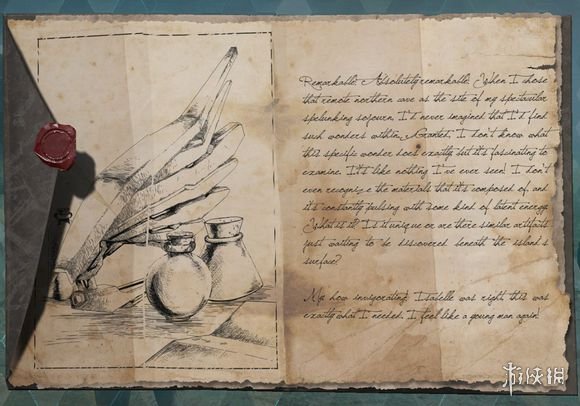 Remarkable. Absolutely remarkable. When I chose
that remote northern cave as the site of my spectacular
spelunking sojourn, I'd never imagined that I'd find
such wonders within. Granted, I don't know what
this specific wonder does exactly, but it's fascinating to
examine. It's like nothing I've ever seen! I don't
even recognize the materials that it's composed of, and
it's constantly pulsing with some kind of latent energy.
What is it? Is it unique or are there similar artifacts
just waiting to be discovered beneath the island's
surface?
My, how invigorating! Isabelle was right, this was
exactly what I needed. I feel like a young man again!
游侠网